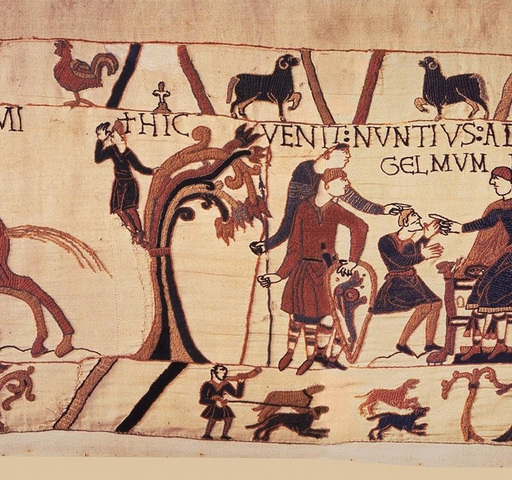 MI †HIC VENIT:NVNTIVS:
GELMVM